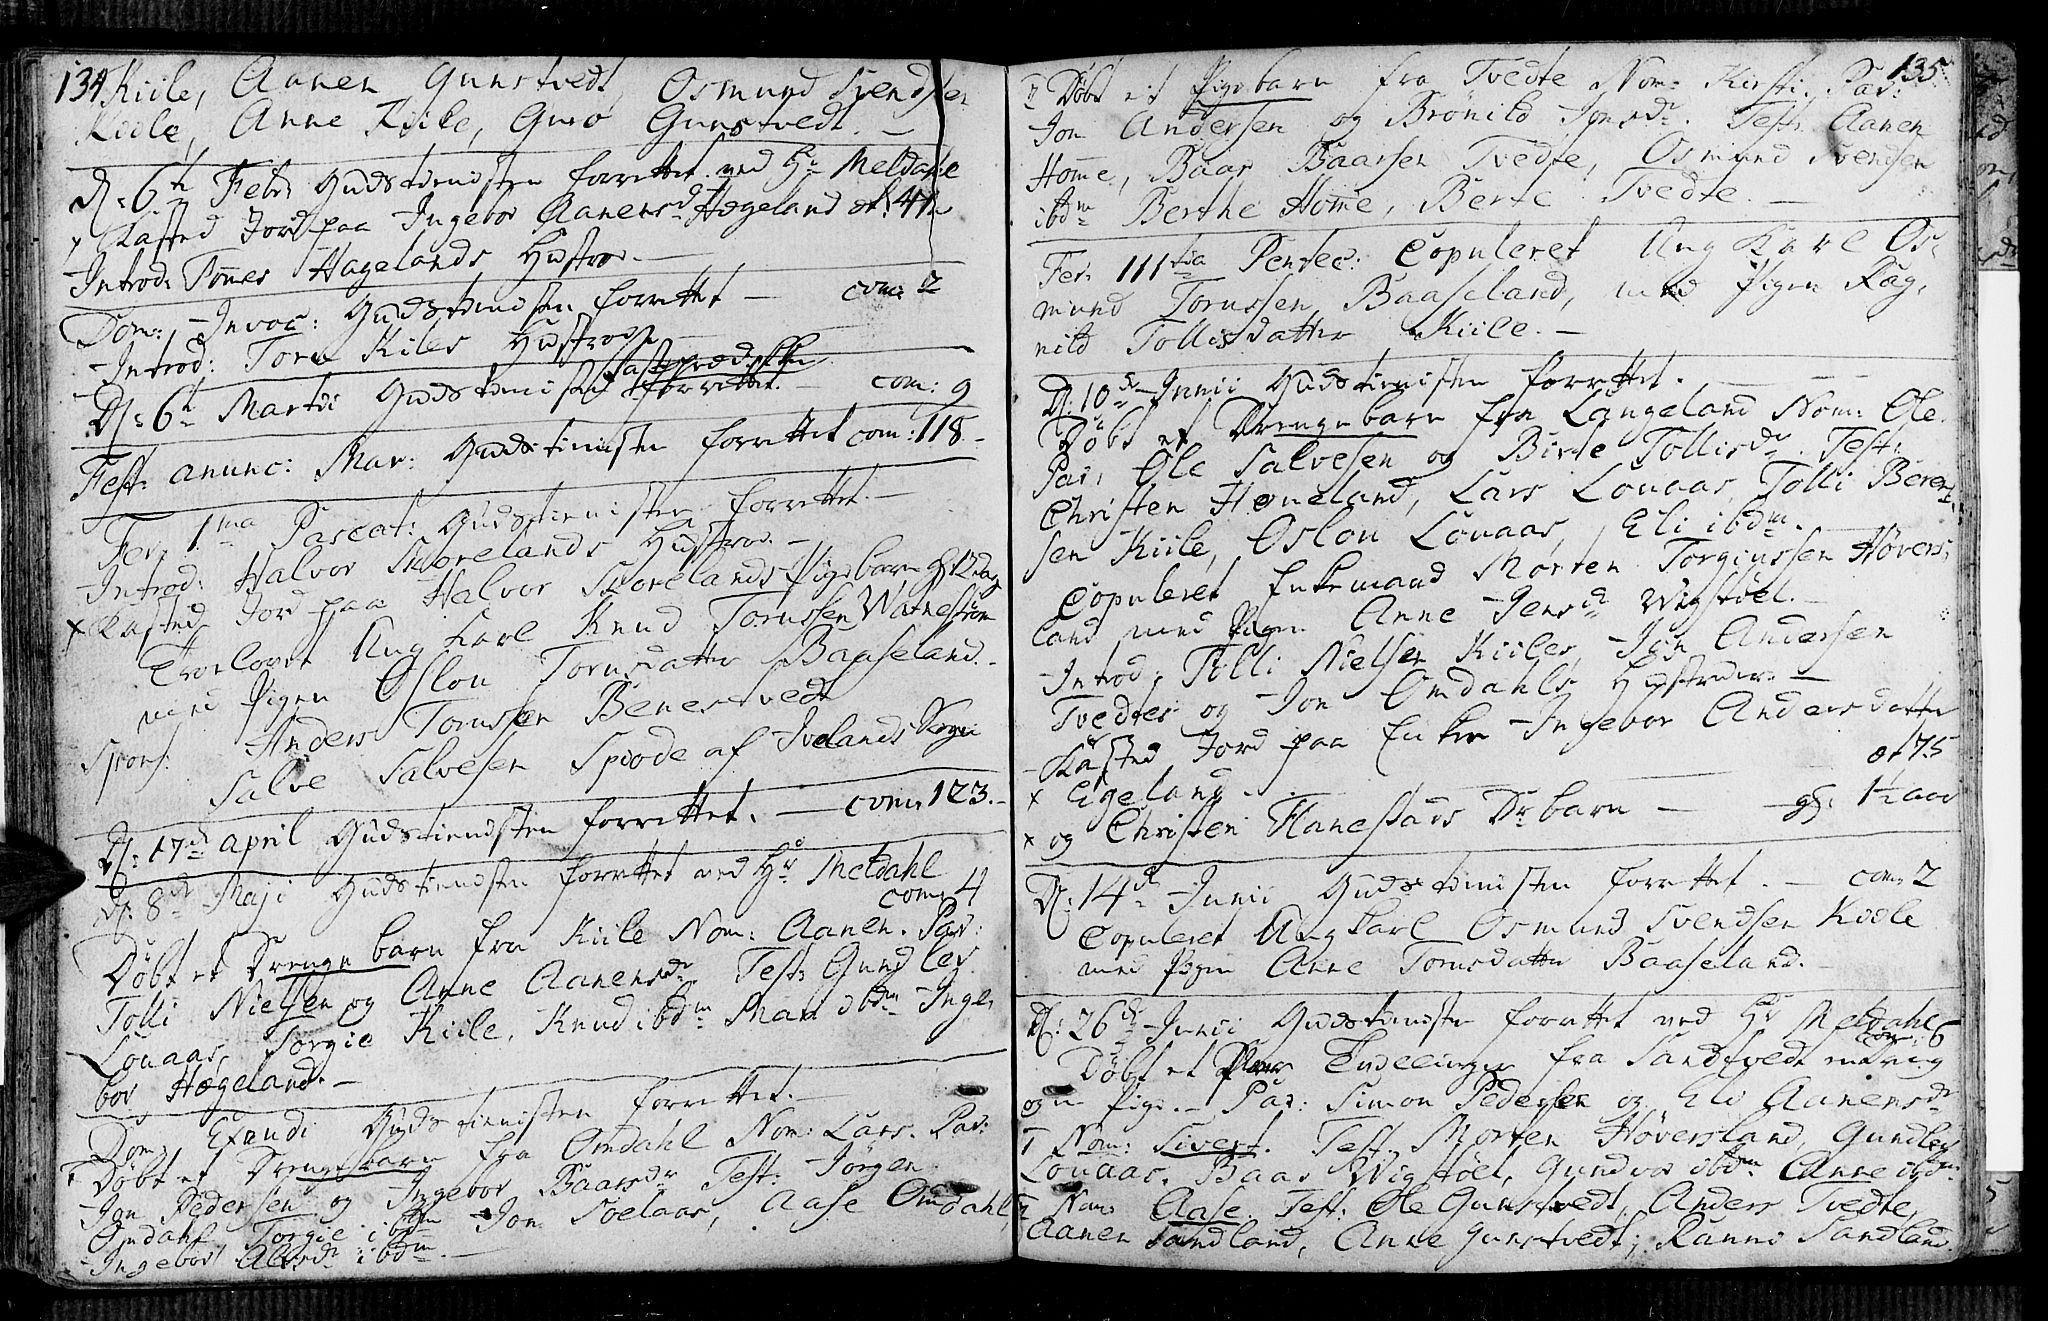 134 Kiile, Aanen Gunstvedt, Osmund Svendsen
Kodle, Anne Kiile, Guro Gunstvedt. —
D: 6te Febr: Gudstienisten forrettet ved Hr Meldahl
x Kasted Jord paa Ingebor Aanensd Hægeland æt: 41
Introd: Tønnes Hægelands Hustroe. —
Dom: Invoc: Gudstienisten forrettet — com: 2
Introd: Torn Kiles Hustroe
fasteprædiken
D: 6te Martii Gudstienisten forrettet. — com: 9
Fest: anunc: Mar: Gudstienisten forrettet com: 118 –
Fer: 1ma Pascat: Gudstienisten forrettet. —
Introd: Halvor Skorelands Hustroe. —
x Kasted Jord paa Halvor Skorelands Pigebarn gl: 12 dag
Trolovet Ung Karl Knud Tornssen Watnestrøm
med Pigen Oslou Tornsdatter Baaseland. –
Spons: Anders Tornssen Benestvedt
Salve Salvesen Spode af Ivelands Sogn
D: 17de april Gudstienisten forrettet. — com: 123. –
D: 8de Maji Gudstienisten forrettet ved Hr Meldahl
com: 4
Døbt et Drenge barn fra Kiile Nom: Aanen. Par:
Tolli Nielsen og Anne Aanensdr Test: Gundlev
Louaas, Torgie Kiile, Knud ibdm Mari ibdm Inge-
bor Hægeland. —
Dom: Exaudi Gudstienisten forrettet. —
Døbt et Drengebarn fra Omdahl Nom: Lars. Par:
Jon Pedersen og Ingebor Baarsdr Test: Jørgen
Omdahl Torgie ibdm Jon Soelaas, Aase Omdahl
Ingebor Alvsdr ibdm. —
135
Døbt et Pigebarn fra Tvedte Nom: Kirsti. Par:
Jon Andersen og Brønild Jonsdr. Test: Aanen
Homme, Baar Baarsen Tvedte, Osmund Svendsen
ibdm Berthe Homme, Berte Tvedte. —
Fer: IIItia Pentec: Copuleret Ung Karl Os-
mund Tornssen Baaseland, med Pigen Rag-
nild Tollisdatter Kiile. —
D: 10de Junii Gudstienisten forrettet. —
Døbt et Drengebarn fra Langeland Nom: Ole.
Par: Ole Salvesen og Birte Tollisdr. Test:
Christen Høneland, Lars Louaas, Tolli Berent-
sen Kiile, Oslou Louaas, Eli ibdm.
Copuleret Enkemand Morten Torgiussen Høvers-
land med Pigen Anne Jensdr Wigstøel. –
Introd: Tolli Nielsen Kiiles, Jon Andersen
Tvedtes og Jon Omdahls Hustruer. —
Kasted Jord paa Enken Ingebor Andersdatter
x Egeland. — æt 75
x og Christen Flanestads Dr barn — gl: 1½ aar
D: 14de Junii Gudstienisten forrettet. — com: 2
Copuleret Ung Karl Osmund Svendsen Kodle
med Pigen Anne Tornsdatter Baaseland. –
D: 26de Junii Gudstienisten forrettet ved Hr Meldahl
com: 6
Døbt et Par Tvellinger fra Sandtvedt en Dreng
og en Pige. – Par: Simon Pedersen og Eli Aanensdr
1 Nom: Sivert. Test: Morten Høversland, Gundlev
Louaas, Baar Wigstøel, Gundvor ibdm Anne ibdm.
2 Nom: Aase. Test: Ole Gunstvedt, Anders Tvedte,
Aanen Sandland, Anne Gunstvedt, Ranni Sandland.